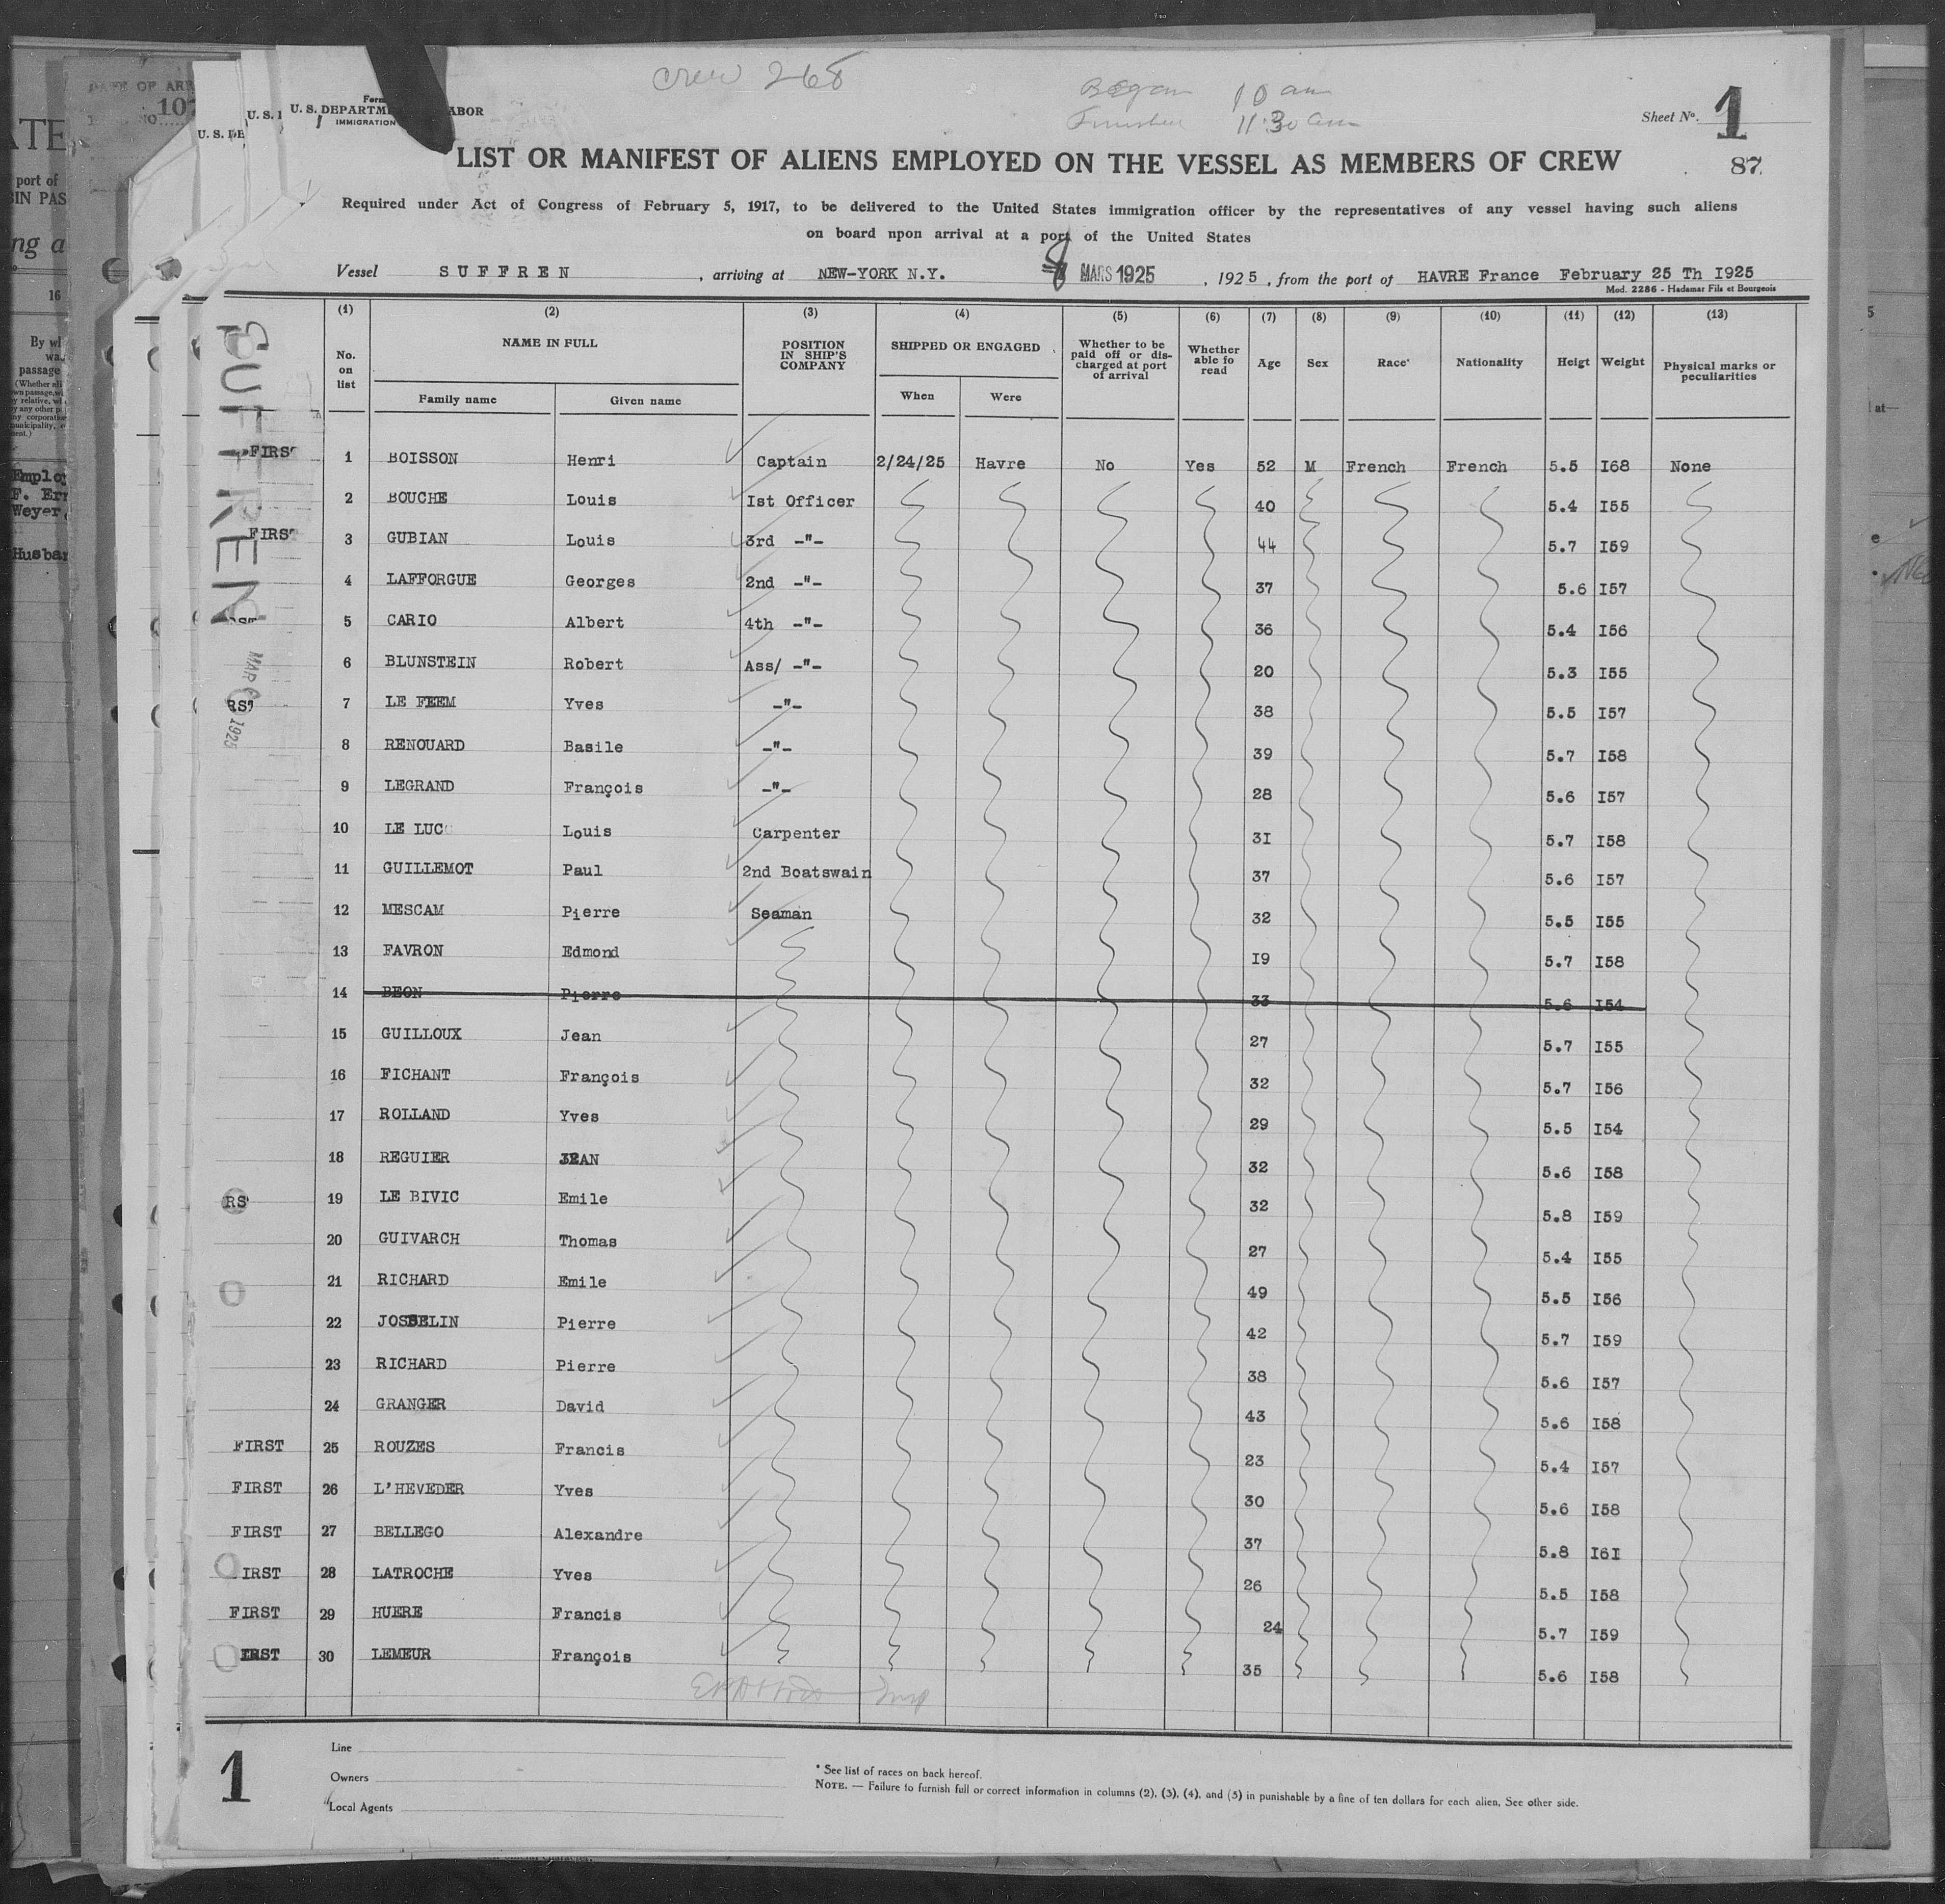 crew 268
Began 10 am
Finished 11:30 am
U. S. DEPARTM ABOR
IMMIGRATION
Sheet No. 1
87
LIST OR MANIFEST OF ALIENS EMPLOYED ON THE VESSEL AS MEMBERS OF CREW
Required under Act of Congress of February 5, 1917, to be delivered to the United States immigration officer by the representatives of any vessel having such aliens
on board npon arrival at a port of the United States
Vessel SUFFREN , arriving at NEW-YORK N.Y. 8 MARS 1925 , 1925 , from the port of HAVRE France February 25 Th I925
Mod. 2286 - Hadamar Fils et Bourgeois
(1) (2) (3) (4) (5) (6) (7) (8) (9) (10) (11) (12) (13)
No. on list NAME IN FULL Family name Given name POSITION IN SHIP'S COMPANY SHIPPED OR ENGAGED When Were Whether to be paid off or discharged at port of arrival Whether able fo read Age Sex Race* Nationality Heigt Weight Physical marks or peculiarities
SUFFREN
MAR 1925
FIRST 1 BOISSON Henri Captain 2/24/25 Havre No Yes 52 M French French 5.5 I68 None
2 BOUCHE Louis Ist Officer 40 5.4 I55
FIRST 3 GUBIAN Louis 3rd -"- 44 5.7 I59
4 LAFFORGUE Georges 2nd -"- 37 5.6 I57
5 CARIO Albert 4th -"- 36 5.4 I56
6 BLUNSTEIN Robert Ass/ -"- 20 5.3 I55
RST 7 LE FEEM Yves -"- 38 5.5 I57
8 RENOUARD Basile -"- 39 5.7 I58
9 LEGRAND François -"- 28 5.6 I57
10 LE LUC Louis Carpenter 3I 5.7 I58
11 GUILLEMOT Paul 2nd Boatswain 37 5.6 I57
12 MESCAM Pierre Seaman 32 5.5 I55
13 FAVRON Edmond I9 5.7 I58
14 BEON Pierre 33 5.6 I54
15 GUILLOUX Jean 27 5.7 I55
16 FICHANT François 32 5.7 I56
17 ROLLAND Yves 29 5.5 I54
18 REGUIER JEAN 32 5.6 I58
RS 19 LE BIVIC Emile 32 5.8 I59
20 GUIVARCH Thomas 27 5.4 I55
21 RICHARD Emile 49 5.5 I56
22 JOSSELIN Pierre 42 5.7 I59
23 RICHARD Pierre 38 5.6 I57
24 GRANGER David 43 5.6 I58
FIRST 25 ROUZES Francis 23 5.4 I57
FIRST 26 L'HEVEDER Yves 30 5.6 I58
FIRST 27 BELLEGO Alexandre 37 5.8 I6I
IRST 28 LATROCHE Yves 26 5.5 I58
FIRST 29 HUERE Francis 24 5.7 I59
IRST 30 LEMEUR François 35 5.6 I58
1
Line
Owners
Local Agents
* See list of races on back hereof.
NOTE. — Failure to furnish full or correct information in columns (2), (3), (4), and (5) in punishable by a fine of ten dollars for each alien, See other side.